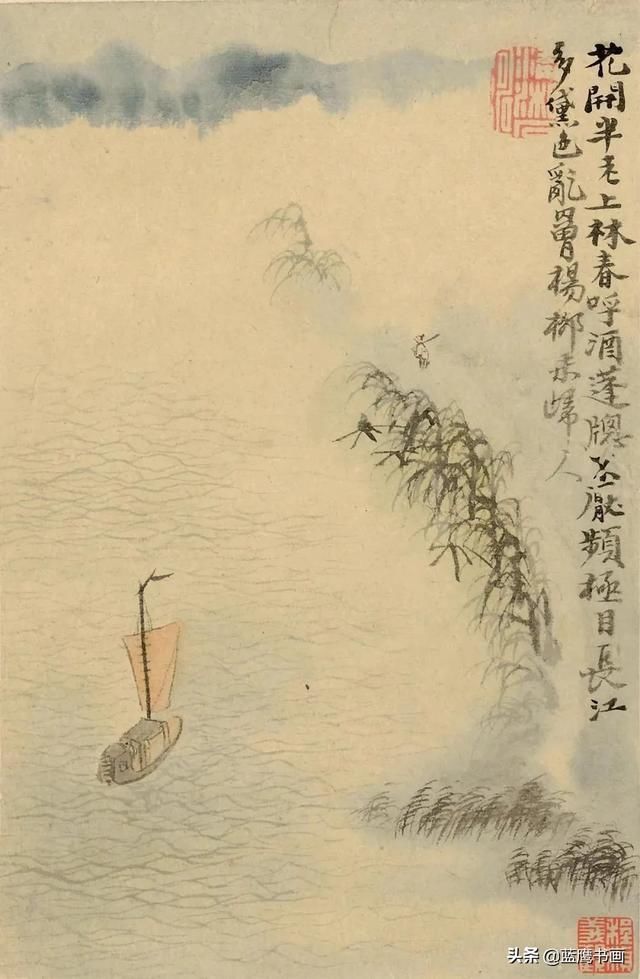 花開半老上林春呼酒蓬牕不厭頻極目長江
多黛色亂罥楊柳未歸人
头条 @蓝鹰书画